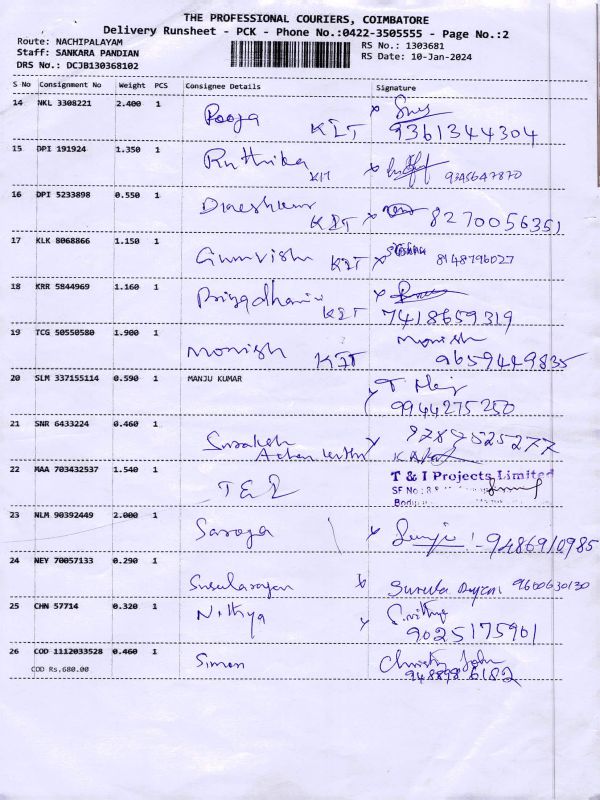 THE PROFESSIONAL COURIERS, COIMBATORE
Delivery Runsheet - PCK - Phone No.:0422-3505555 - Page No.:2
Route: NACHIPALAYAM
Staff: SANKARA PANDIAN
DRS No.: DCJB130368102
RS No.: 1303681
RS Date: 10-Jan-2024
S No Consignment No Weight PCS Consignee Details Signature
14 NKL 3308221 2.400 1 Pooja KIT x
9361344304
15 DPI 191924 1.350 1 Ruthika KIT x 9345647870
16 DPI 5233898 0.550 1 Dineshkumar KIT x 8270056351
17 KLK 8068866 1.150 1 KIT x 8148796027
18 KRR 5844969 1.160 1 KIT x
7418659319
19 TCG 50550580 1.900 1 Monish KIT Monish
9659449835
20 SLM 337155114 0.590 1 MANJU KUMAR T
9944275250
21 SNR 6433224 0.460 1
22 MAA 703432537 1.540 1 T & I Projects Limited
SF No.:
23 NLM 90392449 2.000 1 Saroja x 9486910985
24 NEY 70057133 0.290 1 9600630130
25 CHN 57714 0.320 1 Nithya S.nithya
9025175901
26 COD 1112033528 0.460 1 Simon Christy John
COD Rs.680.00